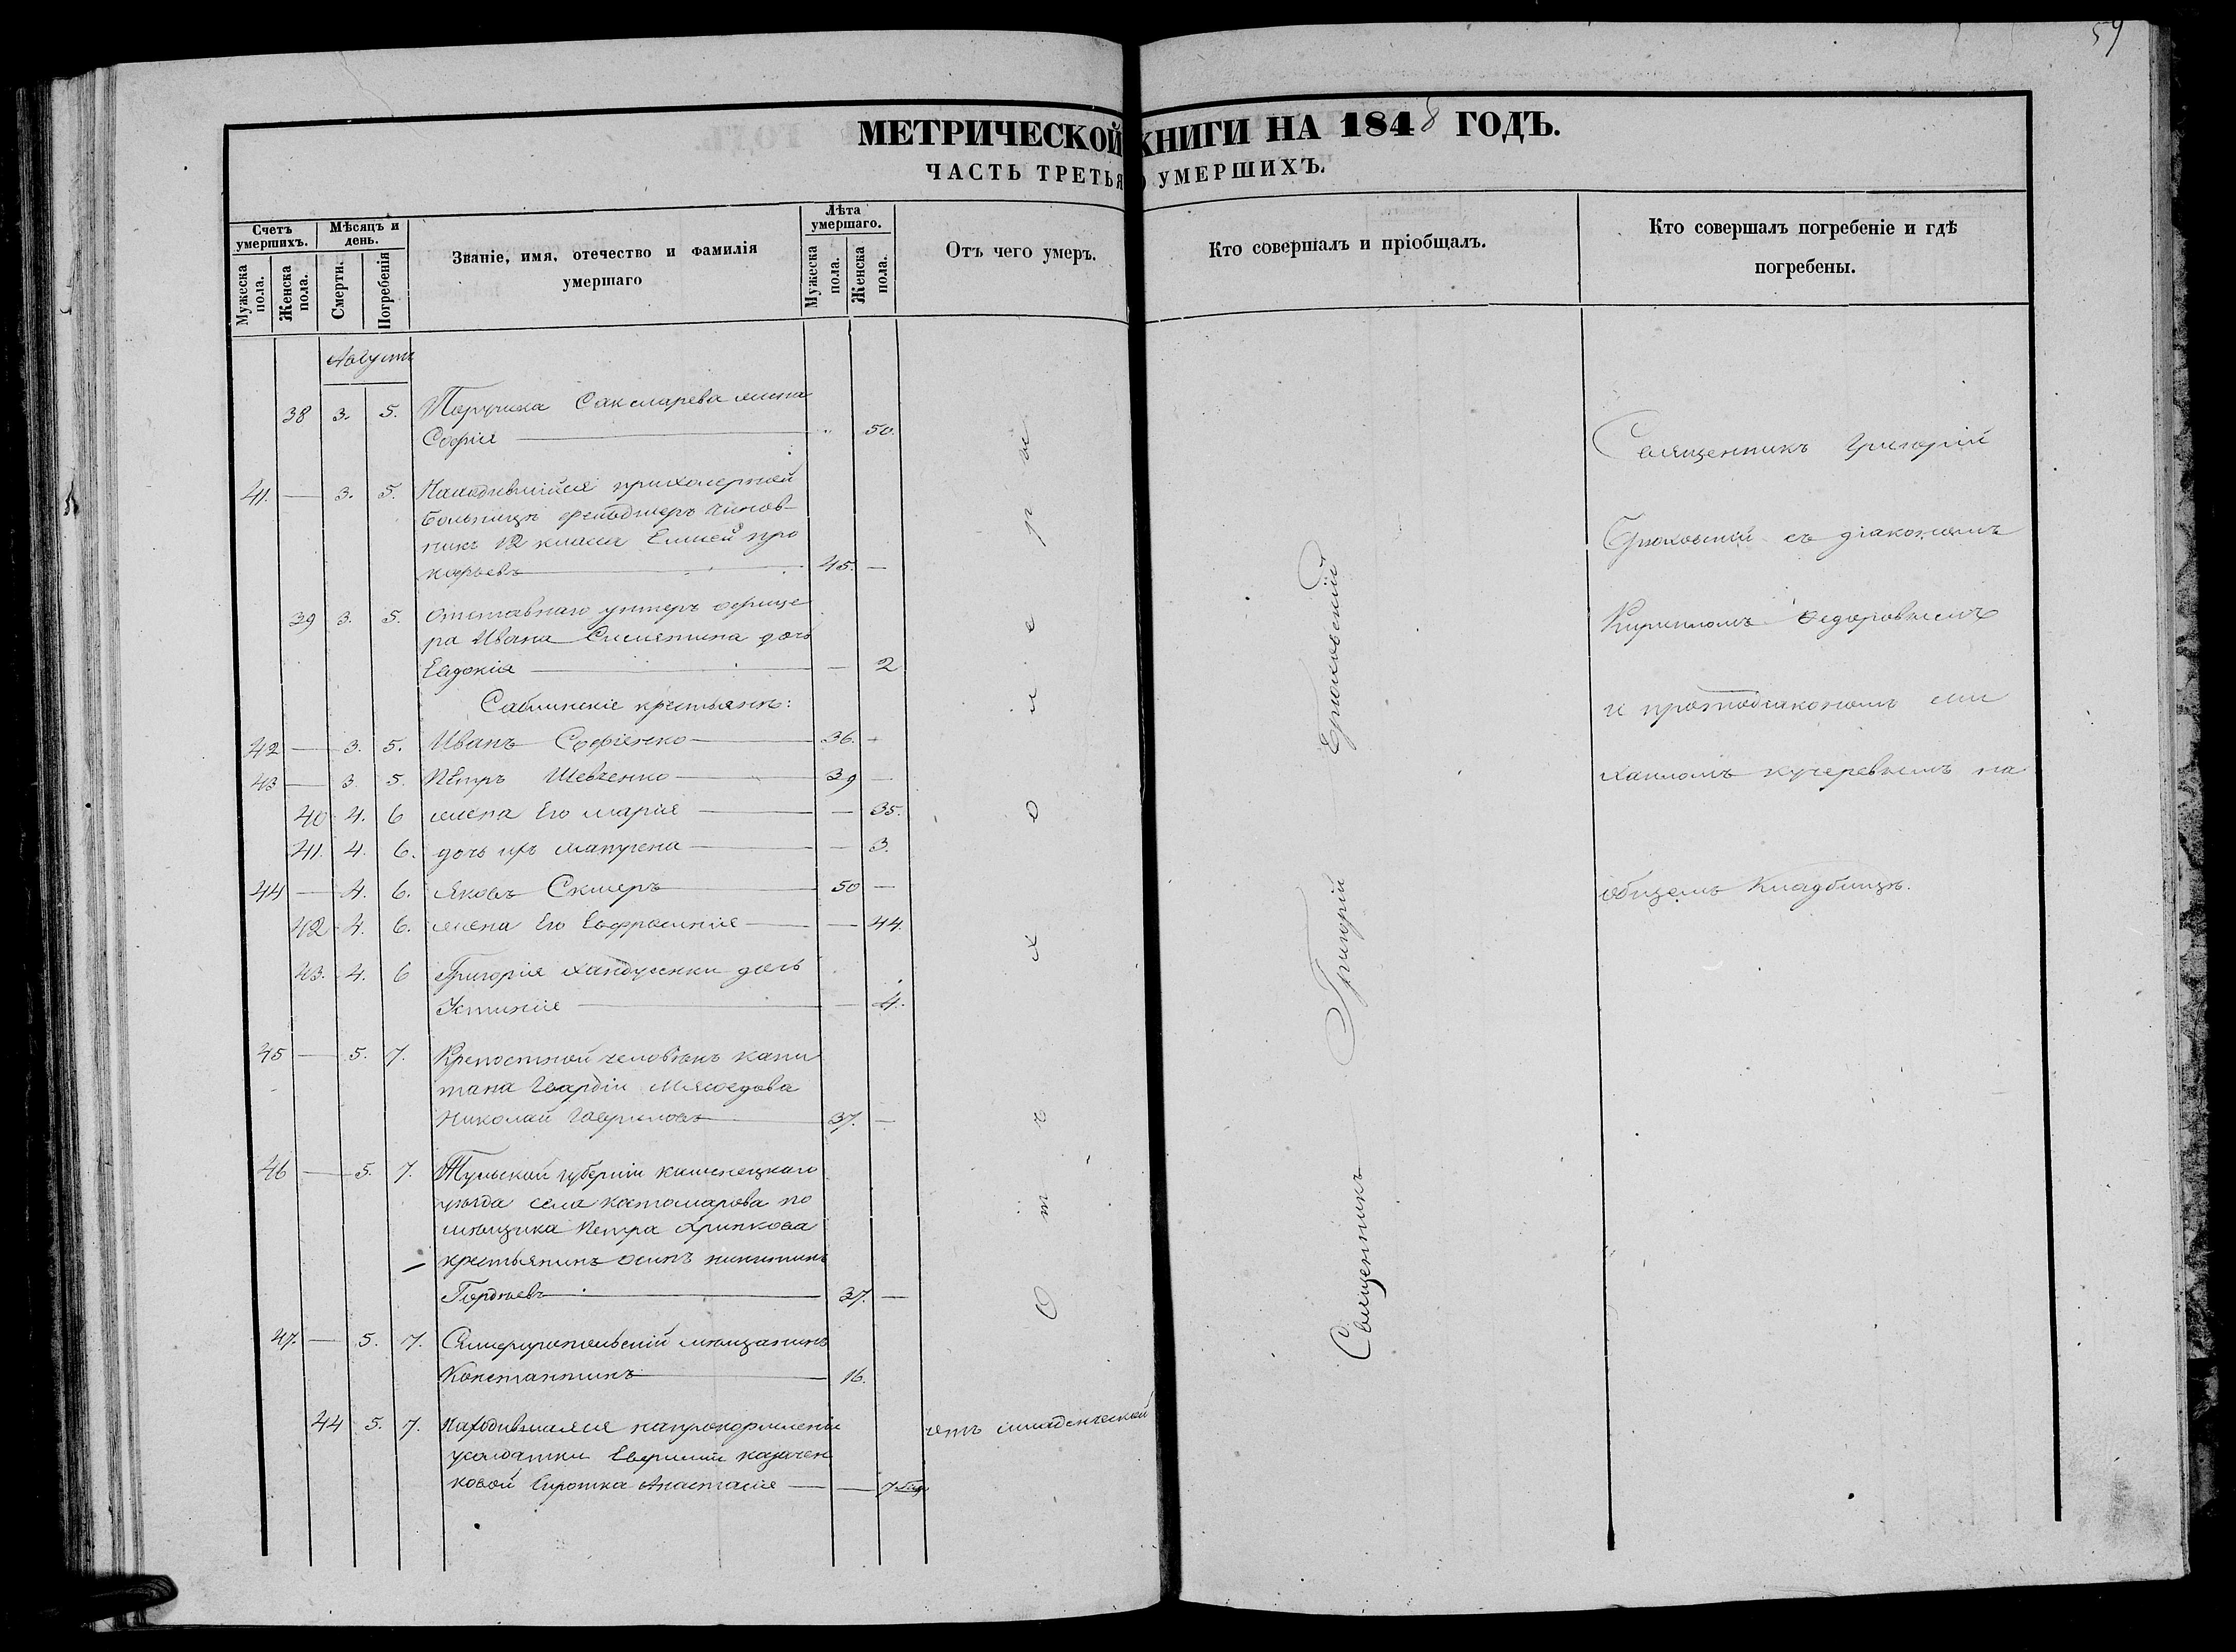 59
МЕТРИЧЕСКОЙ КНИГИ НА 1848 ГОДЪ.
ЧАСТЬ ТРЕТЬЯ О УМЕРШИХЪ.
Счетъ умершихъ.
Мѣсяцъ и день.
Званіе, имя, отечество и фамилія умершаго
Лѣта умершаго.
Отъ чего умеръ.
Кто совершалъ и пріобщалъ.
Кто совершалъ погребеніе и гдѣ
погребены.
Мужеска пола.
Женска пола.
Смерти.
Погребенія
Мужеска пола.
Женска пола.
Августъ
38 3. 5. Поручика жена
Софія 50.
41. — 3. 5. Находившійся прихолерной
больницѣ фельдшеръ чинов-
никъ 12 класса Елисей про
кофьевъ 45. —
39 3. 5. Отставнаго унтеръ офице
ра Ивана дочь
Евдокія — 2
Саблинскіе крестьяне:
42 — 3. 5. Иванъ Софіенко 36. -
43 — 3 5. Петръ Шевченко 39 —
40 4. 6 жена Его марія — 35.
41. 4. 6. дочь ихъ матрена — 3.
44 — 4. 6. Яковъ Скляръ 50 —
42 4. 6. жена Его Евфросинія — 44.
43. 4. 6 Григорія дочь
Устинія — 4.
45 — 5. 7. Крепостной человѣкъ капи
тана Гвардіи Мясоедова
Николай Гавриловъ 37. —
46 — 5. 7. Тульской губерніи
уѣзда села костомарова по
мѣщика Петра Хрипкова
крестьянинъ осипъ никитинъ
Гордѣевъ 37. —
47. — 5. 7. Симферопольскій мѣщанинъ
Константинъ 16.
44 5. 7. Находившаяся напрокормленіи
усолдатки Евфиміи казачен
ковой сиротка Анастасія — 7
Отъ холеры
младенческой
Священникъ Григорій
Священникъ Григорій
съ діакономъ
Кирилломъ Федоровымъ
и протодіакономъ ми
хаиломъ кучеревымъ на
общемъ Кладбищѣ.